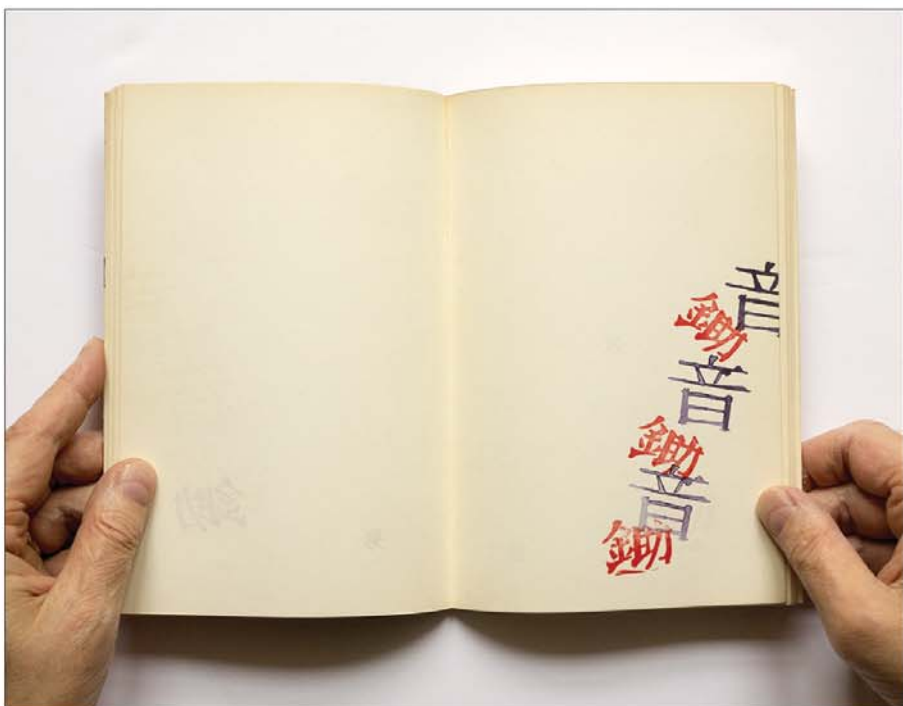 音
鋤
音
鋤
音
鋤